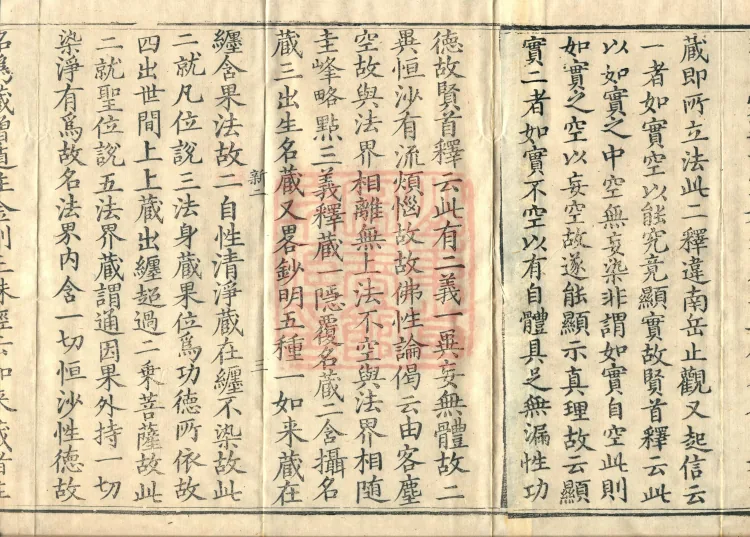 藏即所立法此二釋違南岳止觀又起信云
一者如實空以能究竟顯實故賢首釋云此
以如實之中空無妄染非謂如實自空此則
如實之空以妄空故遂能顯示真理故云顯
實二者如實不空以有自體具足無漏性功
德故賢首釋云此有二義一異妄無體故二
異恒沙有流煩惱故故佛性論偈云由客塵
空故與法界相離無上法不空與法界相隨
圭峰略點三義釋藏一隱覆名藏二含攝名
藏三出生名藏又畧鈔明五種一如来藏在
新一
二
纏含果法故二自性清淨藏在纏不染故此
二就凡位說三法身藏果位為功德所依故
四出世間上上藏出纏超過二乘菩薩故此
二就聖位說五法界藏謂通因果外持一切
染淨有為故名法界內含一切恒沙性德故